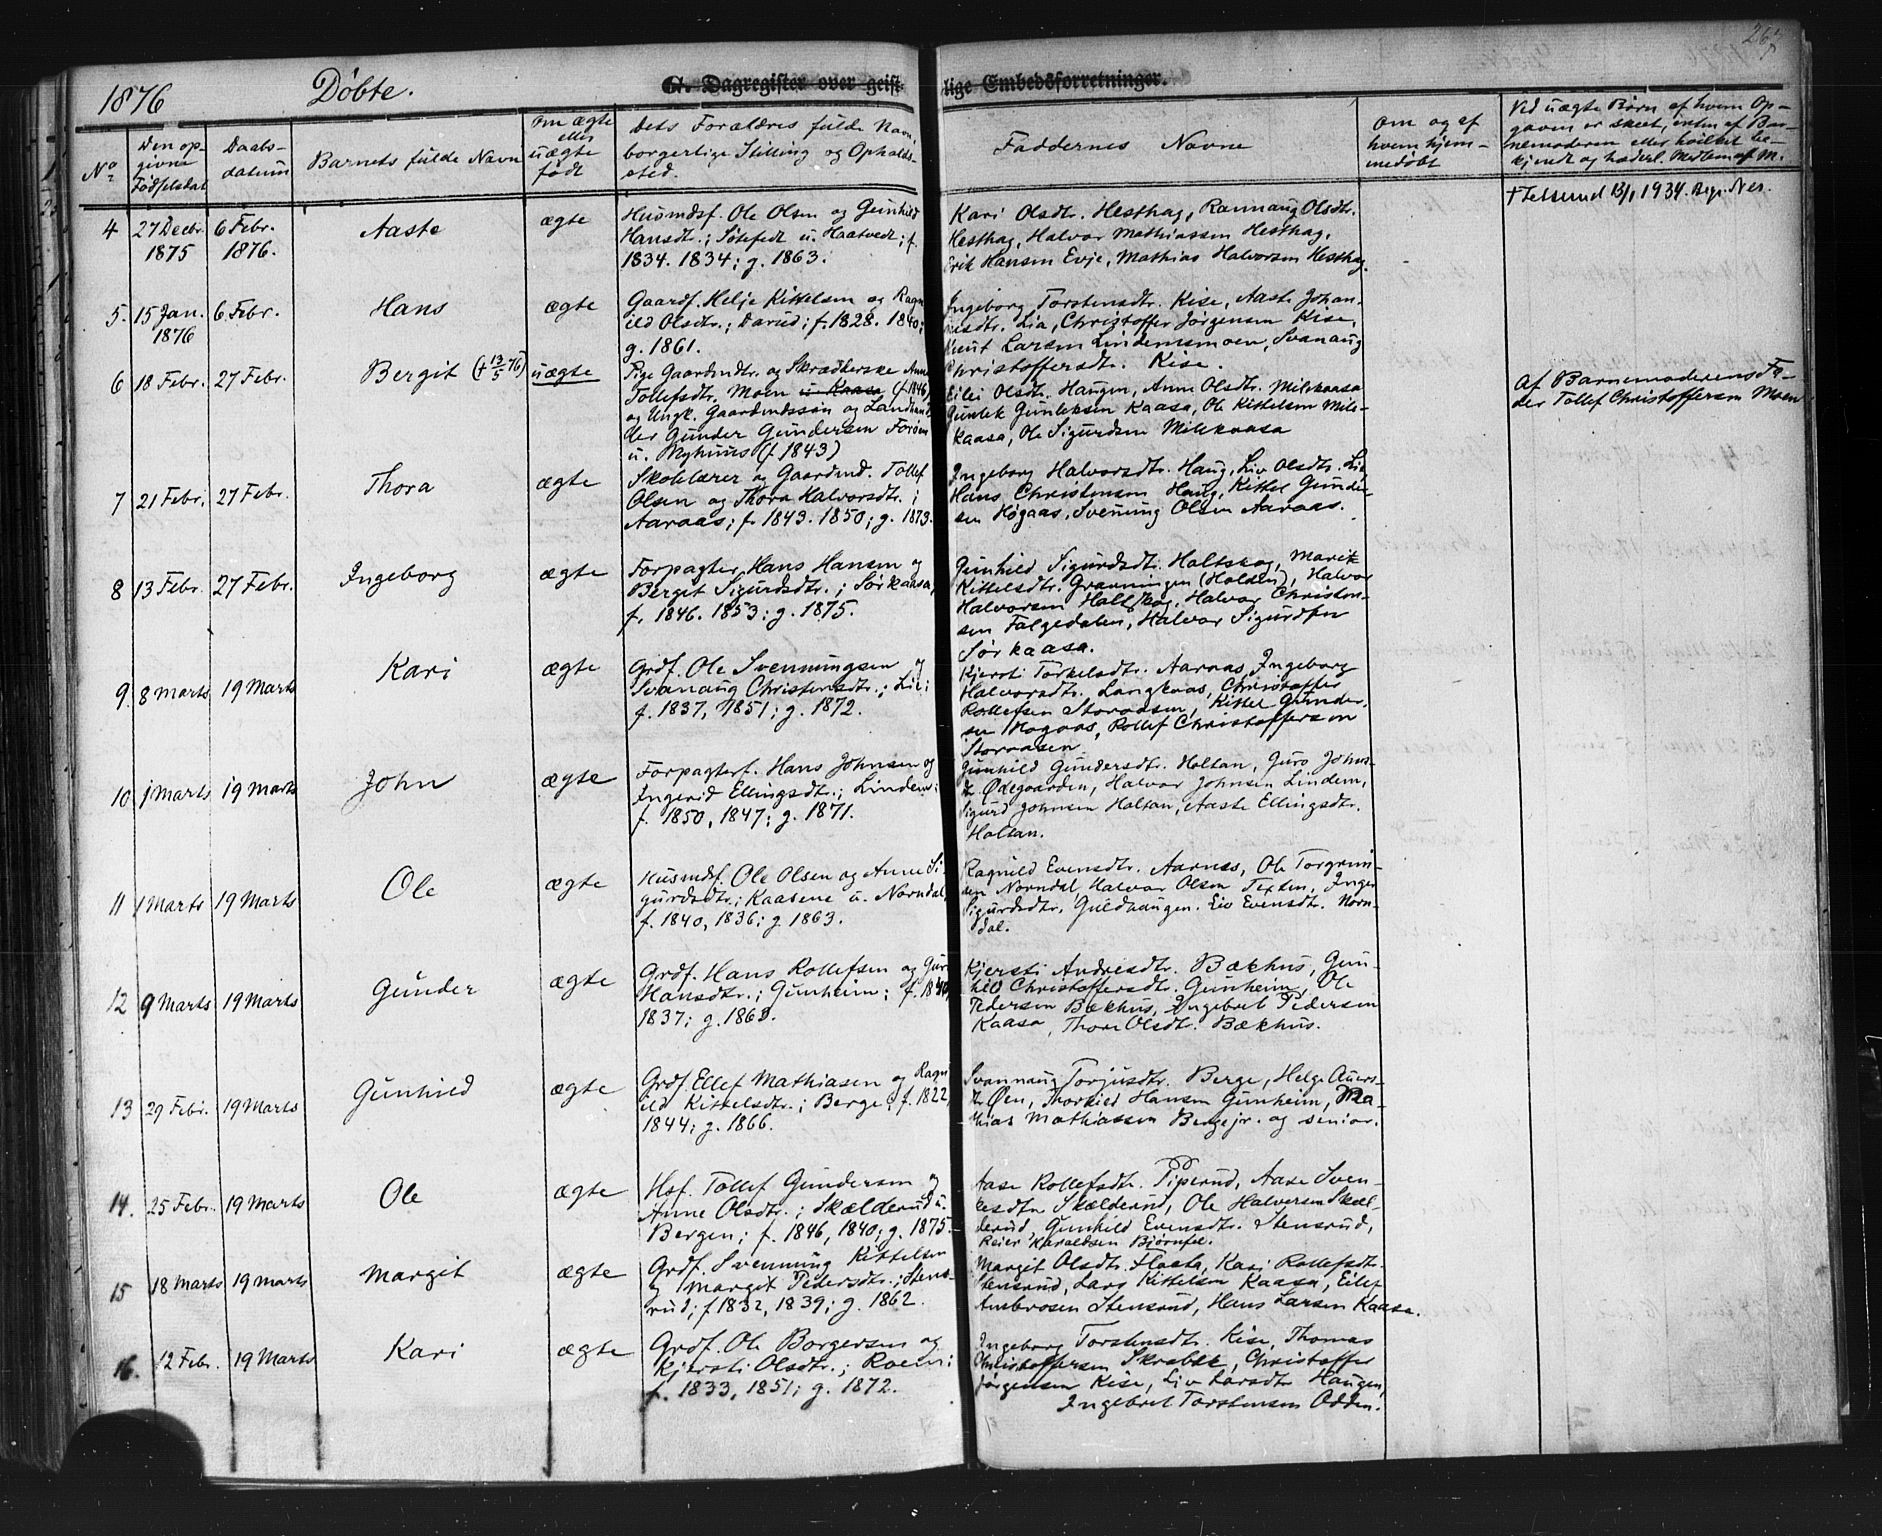 267
1876 Döbte. G. Dagregister over geist- lige Embedsforretninger.
No
Den op-
givne
Fødselsdat
Daabs-
datum
Barnets fulde Navn
Om ægte
eller
uægte
født
Dets Forældres fulde Navn,
borgerlige Stilling og Opholds-
sted.
Faddernes Navne
Om og af
hvem hjem-
medøbt
Ved uægte Børn af hvem Op-
gaven er skeet, enten af Bar-
nemoderen eller hvilket be-
kjendt og hæderl. Medlem af M.
4
27 Decbr.
1875
6 Febr.
1876.
Aaste
ægte
Husmdsf. Ole Olsen og Gunhild
Hansdtr.; Sötefedt u. Haatvedt; f.
1834. 1834; g. 1863.
Kari Olsdtr. Hesthag, Rannaug Olsdtr.
Hesthag, Halvor Mathiassen Hesthag,
Erik Hansen Evje, Mathias Halvorsen Hesthag.
13/1 1934. Nes.
5.
15 Jan.
1876
6 Febr.
Hans
ægte
Gaardf. Helje Kittelsen og Ragn
ild Olsdtr.; Darud; f. 1828. 1840;
g. 1861.
Ingeborg Torstensdtr. Kise, Aaste Johan-
nesdtr. Lia, Christoffer Jörgensen Kise,
Knut Larsen Lindemsmoen, Svanaug
Christoffersdtr. Kise.
6
18 Febr.
27 Febr.
Bergit († 13/5 76)
uægte
Pige Gaardmdtr. og Skrædderske Anne
Tollefsdtr. Moen u. Kaasa (f. 1846)
og Ungk. Gaardmdssön og Landhand
ler Gunder Gundersen
u. Nyhuus (f. 1843)
Eilei Olsdtr. Haugen, Anne Olsdtr. Milekaasa
Gunlek Gunleksen Kaasa, Ole Kittelsen Mile-
kaasa, Ole Sigurdsen Milekaasa
Af Barnemoderens Fa-
der Tollef Christoffersen Moen
7
21 Febr.
27 Febr.
Thora
ægte
Skolelærer og Gaardmd. Tollef
Olsen og Thora Halvorsdtr.;
Aaraas; f. 1843. 1850; g. 1873.
Ingeborg Halvorsdtr. Haug, Liv Olsdtr. Lia,
Hans Christensen Haug, Kittel Gunder-
sen Högaas, Svenung Olsen Aaraas.
8
13 Febr.
27 Febr.
Ingeborg
ægte
Forpagter Hans Hansen og
Bergit Sigurdsdtr.; Sörkaasa,
f. 1846. 1853; g. 1875.
Gunhild Sigurdsdtr. Holtskog, Marit
Kittelsdtr. Gravningen (Holden), Halvor
Halvorsen Holtskog, Halvor Christen-
sen Folgedalen, Halvor Sigurdsen
Sörkaasa.
9.
8 Marts
19 Marts
Kari
ægte
Grdf. Ole Svenningsen og
Svanaug Christensdtr.; Lie;
f. 1837, 1851; g. 1872.
Kjersti Torkelsdtr. Aaraas, Ingeborg
Halvorsdtr. Langkaas, Christoffer
Rollefsen Storaasen, Kittel Gunder-
sen Hogaas, Rollef Christoffersen
Storaasen
10
1 Marts
19 Marts
John
ægte
Forpagterf. Hans Johnsen og
Ingerid Ellingsdtr.; Lindem;
f. 1850, 1847; g. 1871.
Gunhild Gundersdtr. Holtan, Guro Johns-
dtr. Ødegaarden, Halvor Johnsen Lindem,
Sigurd Johnsen Holtan, Aaste Ellingsdtr.
Holtan.
11
1 Marts
19 Marts
Ole
ægte
Husmdsf. Ole Olsen og Anne Si-
gurdsdtr.; Kaasene u. Norndal,
f. 1840, 1836; g. 1863.
Ragnild Evensdtr. Aarnes, Ole Torgrim-
sen Norndal, Halvor Olsen Texten, Inger
Sigurdsdtr. Guldhaugen. Liv Evensdtr. Norn-
dal.
12
9 Marts
19 Marts
Gunder
ægte
Grdf. Hans Rollefsen og Guro
Hansdtr.; Gunheim; f. 1840,
1837; g. 1863.
Kjersti Andresdtr. Bækhus, Gun-
hild Christoffersdtr. Gunheim, Ole
Pedersen Bækhus, Ingebret Pedersen
Kaasa, Thore Olsdtr. Bækhus.
13
29 Febr.
19 Marts
Gunhild
ægte
Grdf. Ellef Mathiasen og Ragn
ild Kittelsdtr.; Berge; f. 1822,
1844; g. 1866.
Svannaug Torjusdtr. Berge, Helge
Øen, Torkild Hansen Gunheim, Ma-
thias Mathiassen Berge jr. og senior.
14.
25 Febr.
19 Marts
Ole
ægte
Hsf. Tollef Gundersen og
Anne Olsdtr.; Skælderud u.
Bergen; f. 1846, 1840; g. 1875.
Aase Rollefsdtr. Piperud, Aase Sven-
kesdtr. Skælderud, Ole Halvorsen Skæl-
derud, Gunhild Evensdtr. Stensrud,
Reier Haraldsen Björnfel.
15
18 Marts
19 Marts
Margit
ægte
Grdf. Svennung Kittelsen
og Margit Pedersdtr.; Stens-
rud; f 1832, 1839; g. 1862.
Margit Olsdtr. Flaata, Kari Rollefsdtr.
Stensrud, Lars Kittelsen Kaasa, Eilef
Ambrosen Stensrud, Hans Larsen Kaasa.
16.
12 Febr.
19 Marts
Kari
ægte
Grdf. Ole Borgersen og
Kjersti Olsdtr.; Roen;
f. 1833, 1851; g. 1872.
Ingeborg Torstensdtr. Kise, Thomas
Christoffersen Skrabek, Christoffer
Jörgensen Kise, Liv Larsdtr Haugen,
Ingebret Torstensen Odden.